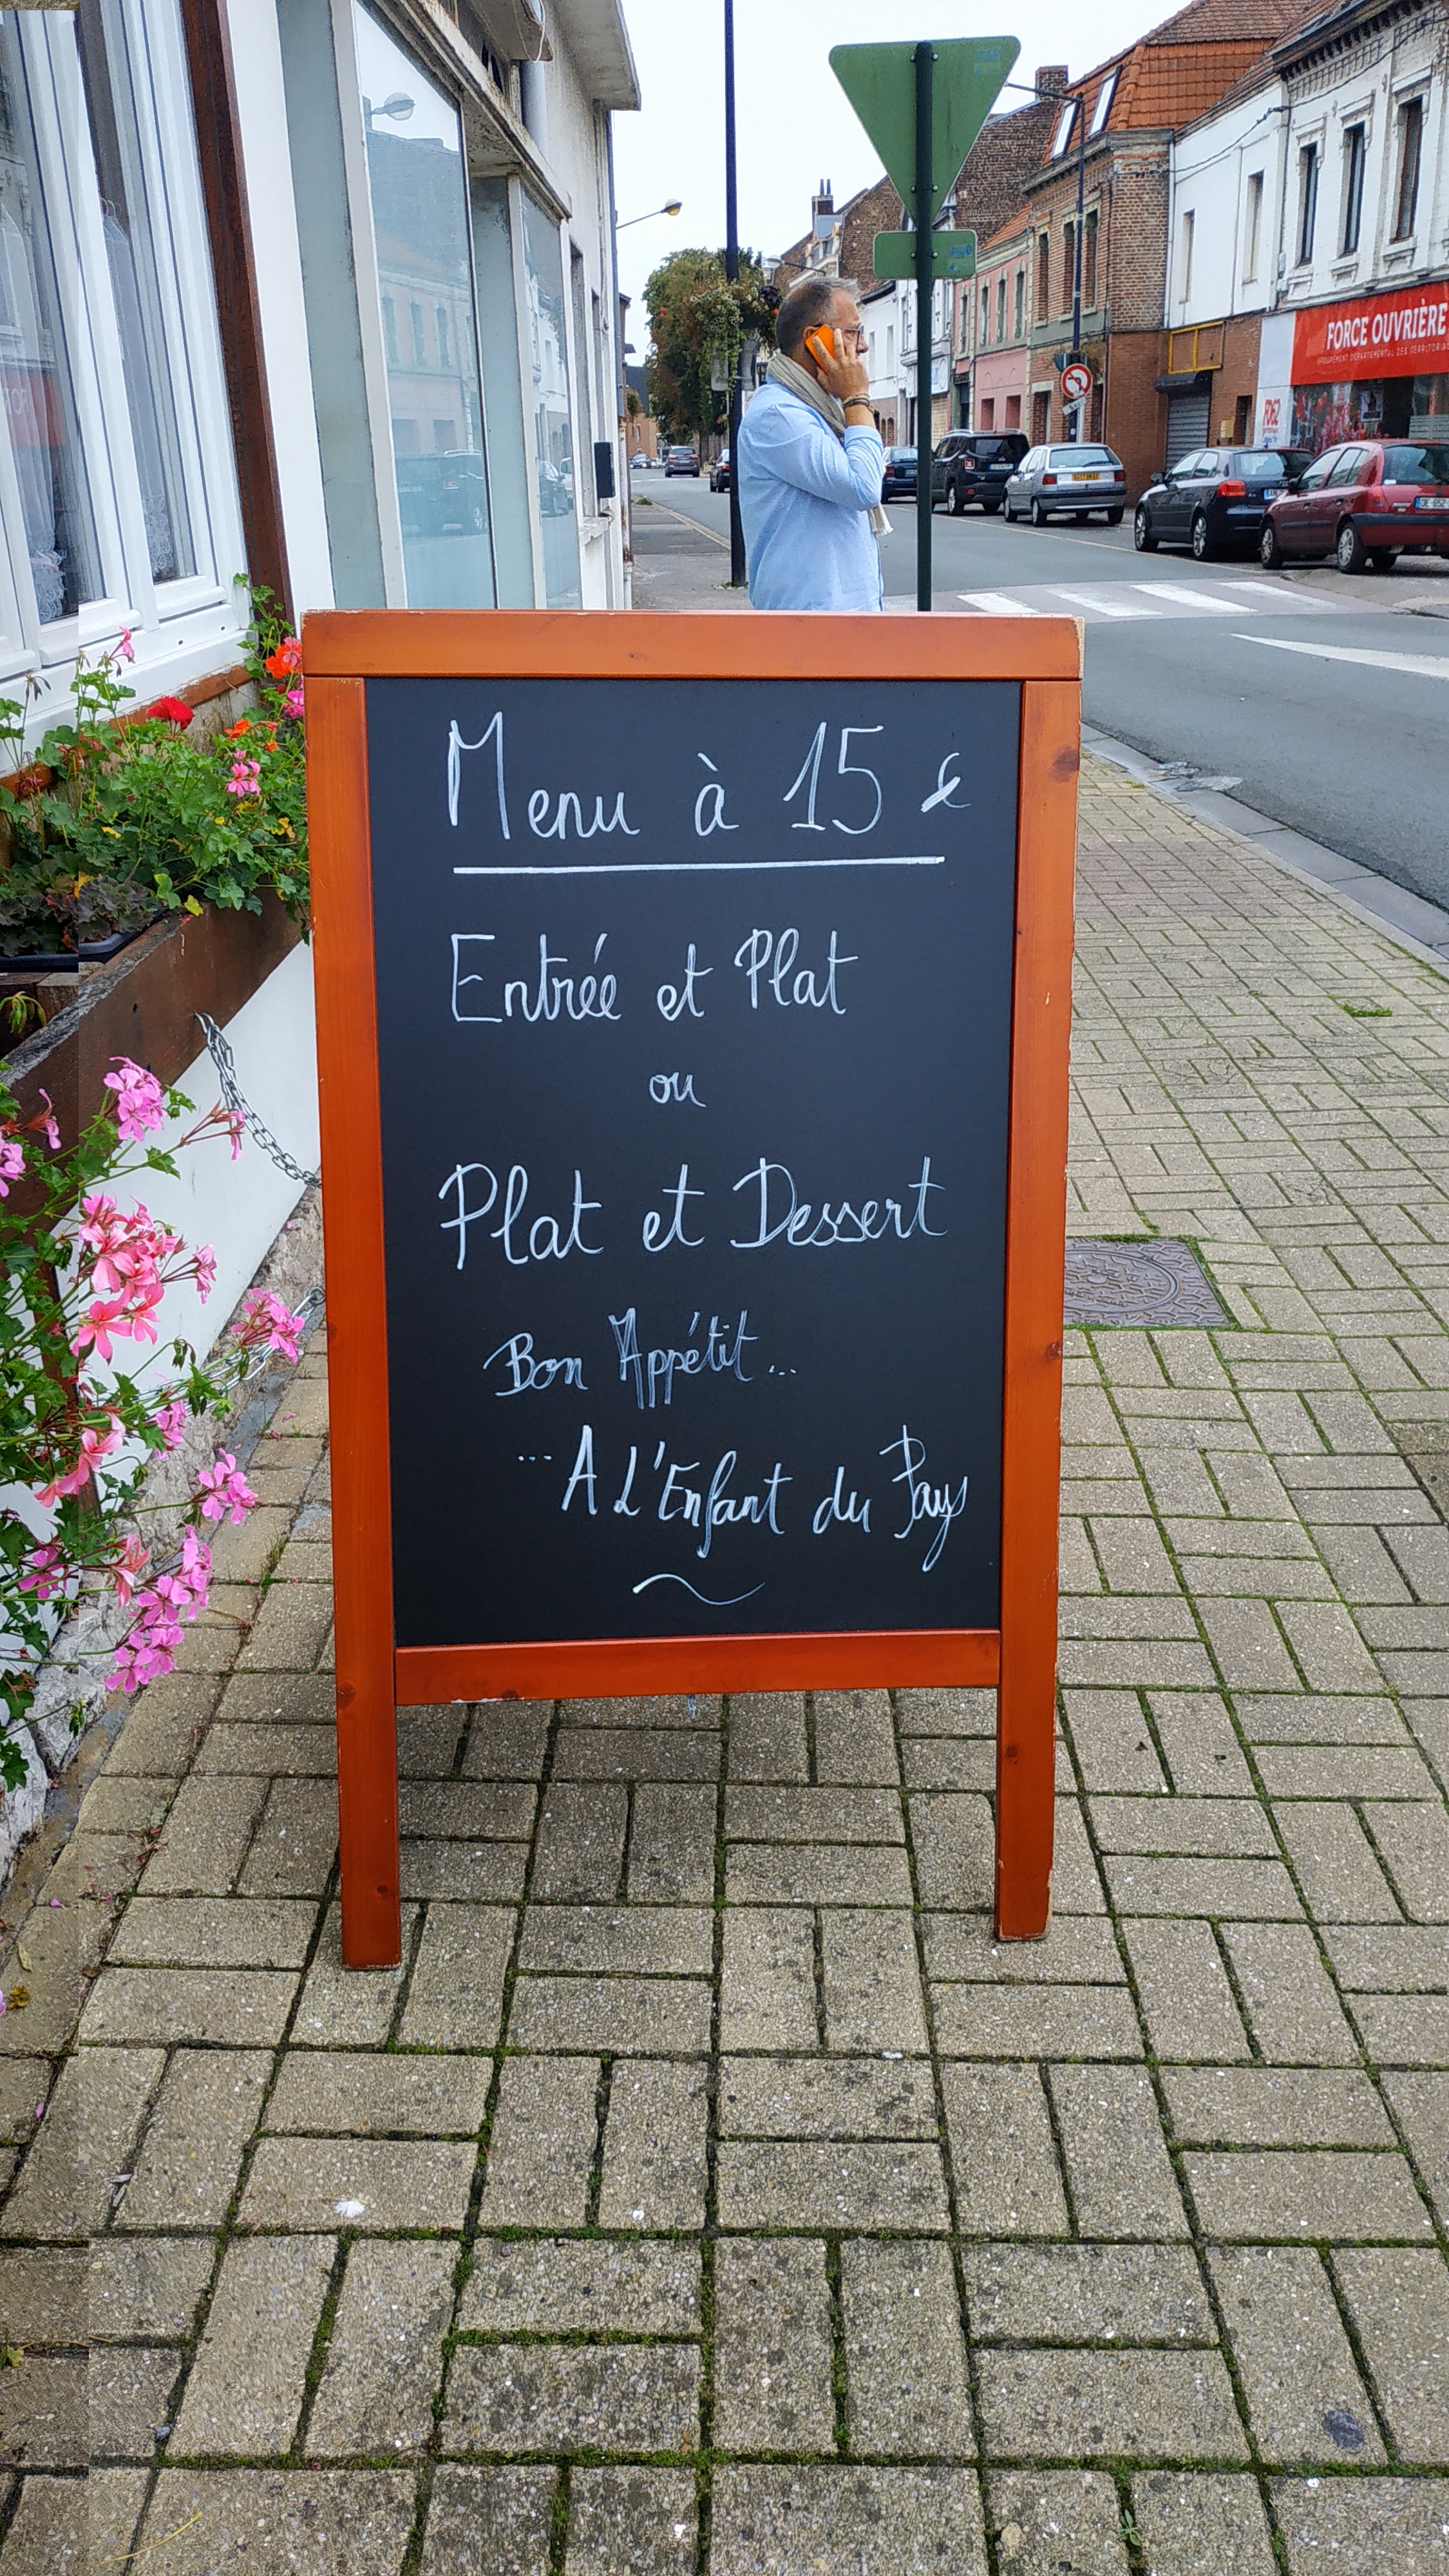 FORCE OUVRIÈRE
GROUPEMENT DÉPARTEMENTAL DES TERRITORIAUX
Menu à 15 €
Entrée et Plat
ou
Plat et Dessert
Bon Appétit...
... A L'Enfant du Pays